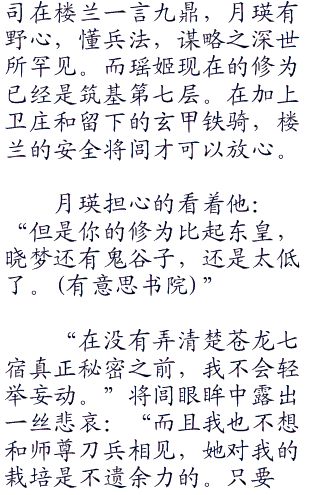 司在楼兰一言九鼎，月瑛有
野心，懂兵法，谋略之深世
所罕见。而瑶姬现在的修为
已经是筑基第七层。在加上
卫庄和留下的玄甲铁骑，楼
兰的安全将闾才可以放心。
月瑛担心的看着他：
“但是你的修为比起东皇，
晓梦还有鬼谷子，还是太低
了。(有意思书院)”
“在没有弄清楚苍龙七
宿真正秘密之前，我不会轻
举妄动。”将闾眼眸中露出
一丝悲哀：“而且我也不想
和师尊刀兵相见，她对我的
栽培是不遗余力的。只要